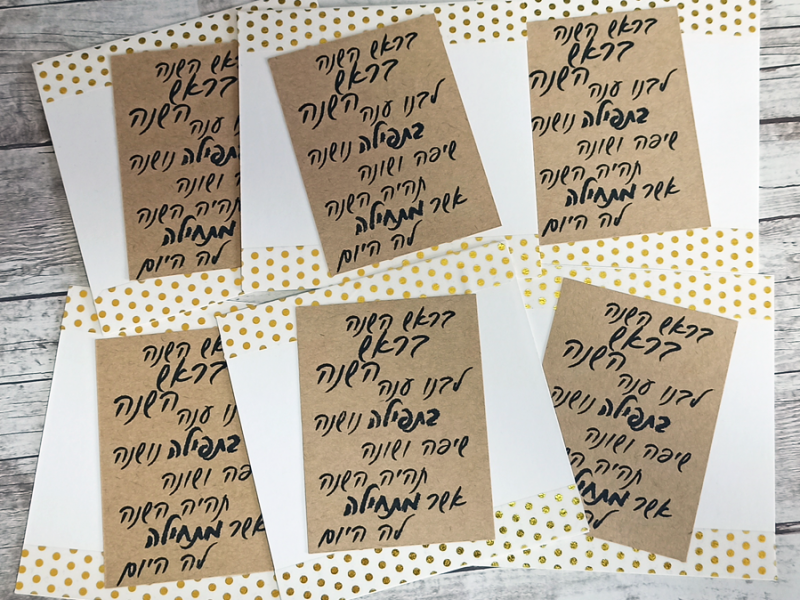 בראש השנה
בראש
השנה
לבנו ענה
בתפילה נושנה
שיפה ושונה
תהיה השנה
אשר מתחילה
לה היום
בראש השנה
בראש
השנה
לבנו ענה
בתפילה נושנה
שיפה ושונה
תהיה השנה
אשר מתחילה
לה היום
השנה
בראש
השנה
ענה
בתפילה נושנה
ושונה
תהיה השנה
מתחילה
לה היום
בראש השנה
בראש
השנה
לבנו ענה
בתפילה נושנה
שיפה ושונה
תהיה השנה
אשר מתחילה
לה
בראש השנה
בראש
השנה
לבנו ענה
בתפילה נושנה
שיפה ושונה
תהיה השנה
אשר מתחילה
לה היום
השנה
בראש
השנה
ענה
בתפילה נושנה
ושונה
תהיה השנה
אשר מתחילה
לה היום